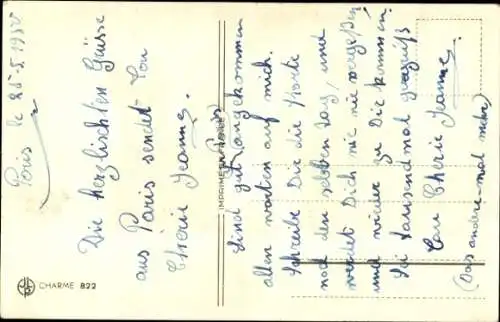 Paris le 25-5-1935
Die herzlichsten Grüsse
aus Paris sendet Von
Chérie Jeanne.
(Paris)
Sind gut angekommen
allen warten auf mich.
Schreibe Dir die Korte
noch den selben Tag, und
werdet Dich nie nie vergeßen
und wieder zu Die kommen.
Sei tausendmal gegrüßt
Von Cherie Jeanne.
(Das andere mal mehr)
CHARME 822